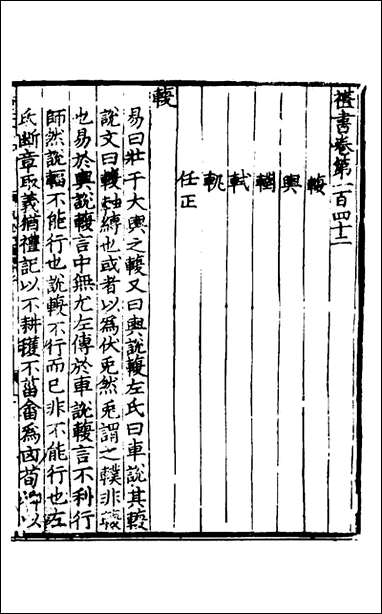 禮書卷第一百四十二
輹
輿
軾
任正
輹
易曰壯于大輿之輹又曰輿說輹左氏曰車說其輹
說文曰輹軸縛也或者以為伏兎然兎謂之轐非輹
也易於輿說輹言中無尤左傳於車說輹言不利行
師然說輻不能行也說輹不行而已非不能行也左
氏斷章取義猶禮記以不耕穫不菑畬為凶荀卿以